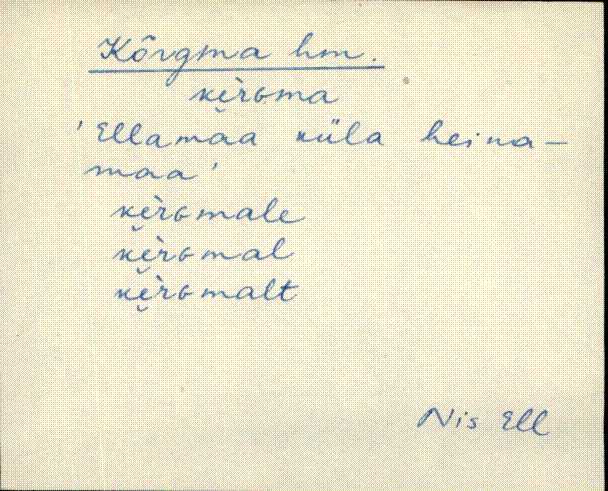 Kõrgma hm.
kè̮rɢma
'Ellamaa küla heina-
maa'
kè̮rɢmale
kè̮rɢmal
kè̮rɢmalt
Nis Ell